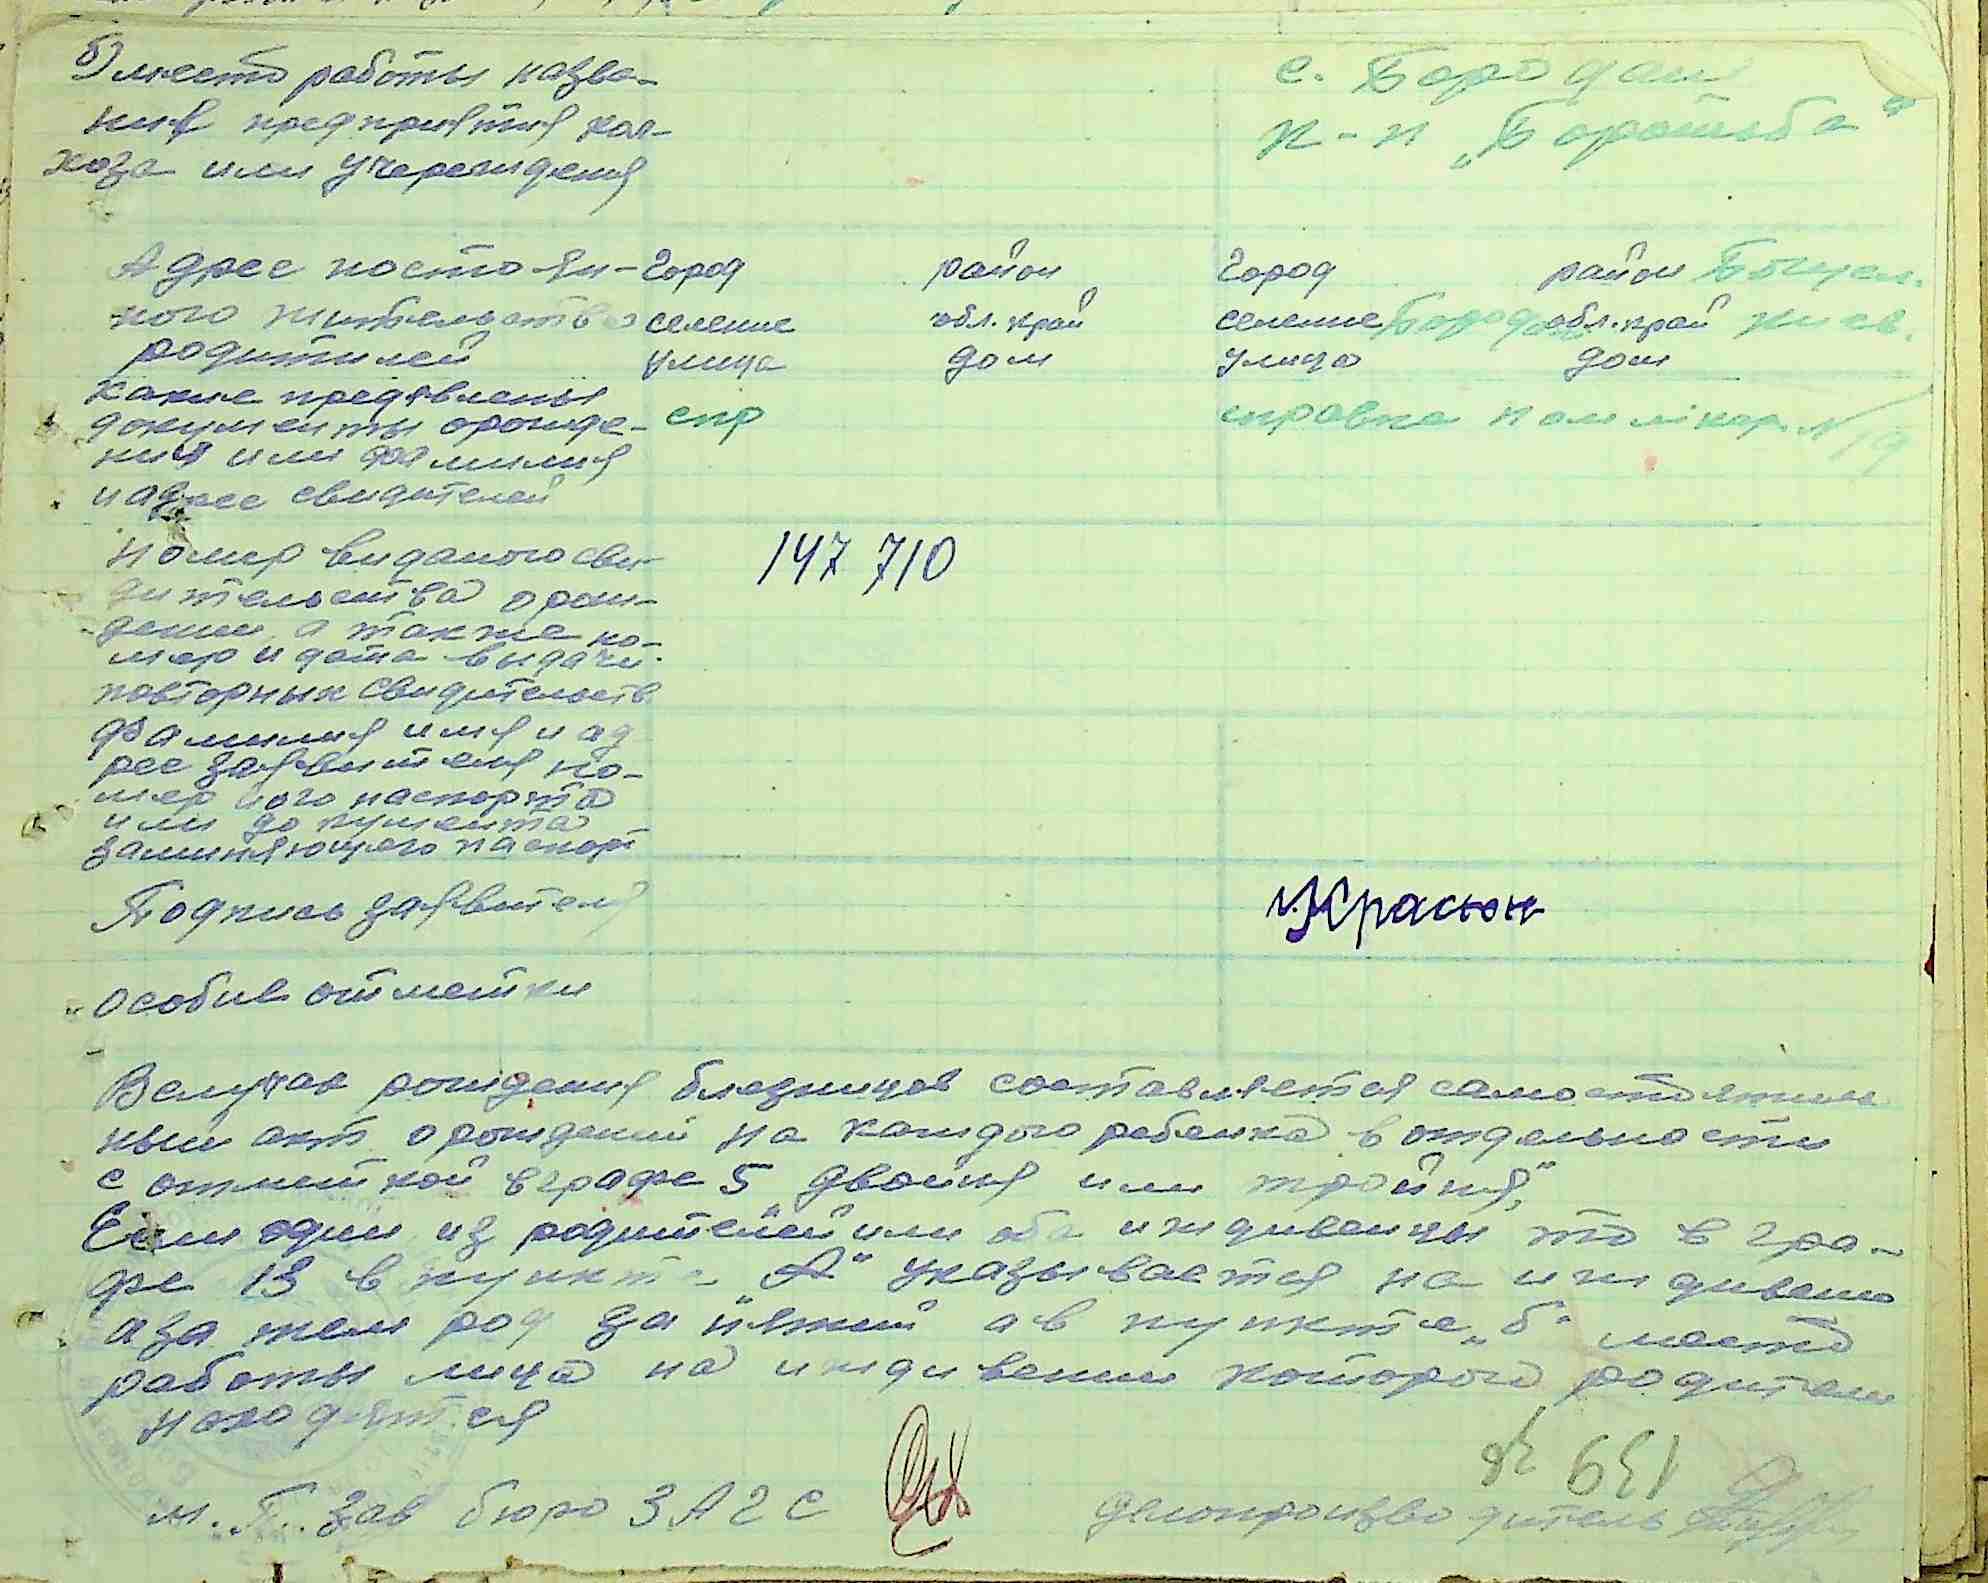 б) место работы назва-
ния предприятия кол-
хоза или учереждения
с. Бородани
к-п „Боротьба"
Адрес постоян-
ного жительства
родителей
город район
селение обл. край
улица дом
город район Богуслав.
селение Бородани обл. край Киев.
улица дом
какие предявлены
документы орожде-
ния или фамилия
и адрес свидителей
спр
справка полмікар. N 19
номер виданого сви-
дительства орож-
дении, а также но-
мер и дата видачи
повторных свидительств
147 710
фамилия имя и ад
рес заявителя но-
мер иого паспорта
или документа
заминяющего паспорт
Подпись заявителя
Красюк
Особие отметки
В случае рождения близницов составляется самостоятель
ный акт орождений на каждого ребенка в отдельности
с отметкой в графе 5 „двойня или тройня"
Если один из родителей или оба иждивенцы то в гра-
фе 13 в пункте „А" указывается на иждивени
а за тем род занятий а в пункте „б" место
работы лица на иждивении которого родители
находятся
139 зв
м. П. Зав бюро ЗАГС
делопроизводитель